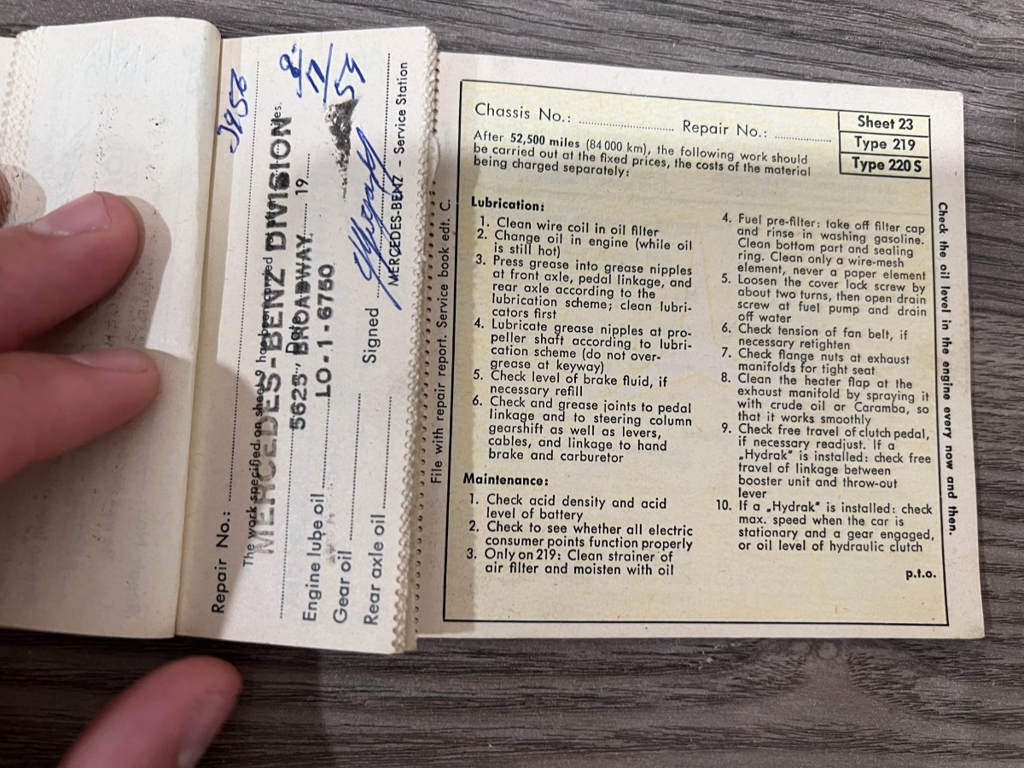 Repair No.:
The work specified on sheet 9
MERCEDES-BENZ DIVISION
5625 BROADWAY 19
LO-1-6750
Engine lube oil
Gear oil
Signed
Rear axle oil
MERCEDES-BENZ - Service Station
File with repair report. Service book edt. C.
Chassis No.: Repair No.:
Sheet 23
Type 219
Type 220 S
After 52,500 miles (84 000 km), the following work should
be carried out at the fixed prices, the costs of the material
being charged separately:
Lubrication:
1. Clean wire coil in oil filter
2. Change oil in engine (while oil
is still hot)
3. Press grease into grease nipples
at front axle, pedal linkage, and
rear axle according to the
lubrication scheme; clean lubri-
cators first
4. Lubricate grease nipples at pro-
peller shaft according to lubri-
cation scheme (do not over-
grease at keyway)
5. Check level of brake fluid, if
necessary refill
6. Check and grease joints to pedal
linkage and to steering column
gearshift as well as levers,
cables, and linkage to hand
brake and carburetor
Maintenance:
1. Check acid density and acid
level of battery
2. Check to see whether all electric
consumer points function properly
3. Only on 219: Clean strainer of
air filter and moisten with oil
4. Fuel pre-filter: take off filter cap
and rinse in washing gasoline.
Clean bottom part and sealing
ring. Clean only a wire-mesh
element, never a paper element
5. Loosen the cover lock screw by
about two turns, then open drain
screw at fuel pump and drain
off water
6. Check tension of fan belt, if
necessary retighten
7. Check flange nuts at exhaust
manifolds for tight seat
8. Clean the heater flap at the
exhaust manifold by spraying it
with crude oil or Caramba, so
that it works smoothly
9. Check free travel of clutch pedal,
if necessary readjust. If a
„Hydrak" is installed: check free
travel of linkage between
booster unit and throw-out
lever
10. If a „Hydrak" is installed: check
max. speed when the car is
stationary and a gear engaged,
or oil level of hydraulic clutch
p.t.o.
Check the oil level in the engine every now and then.